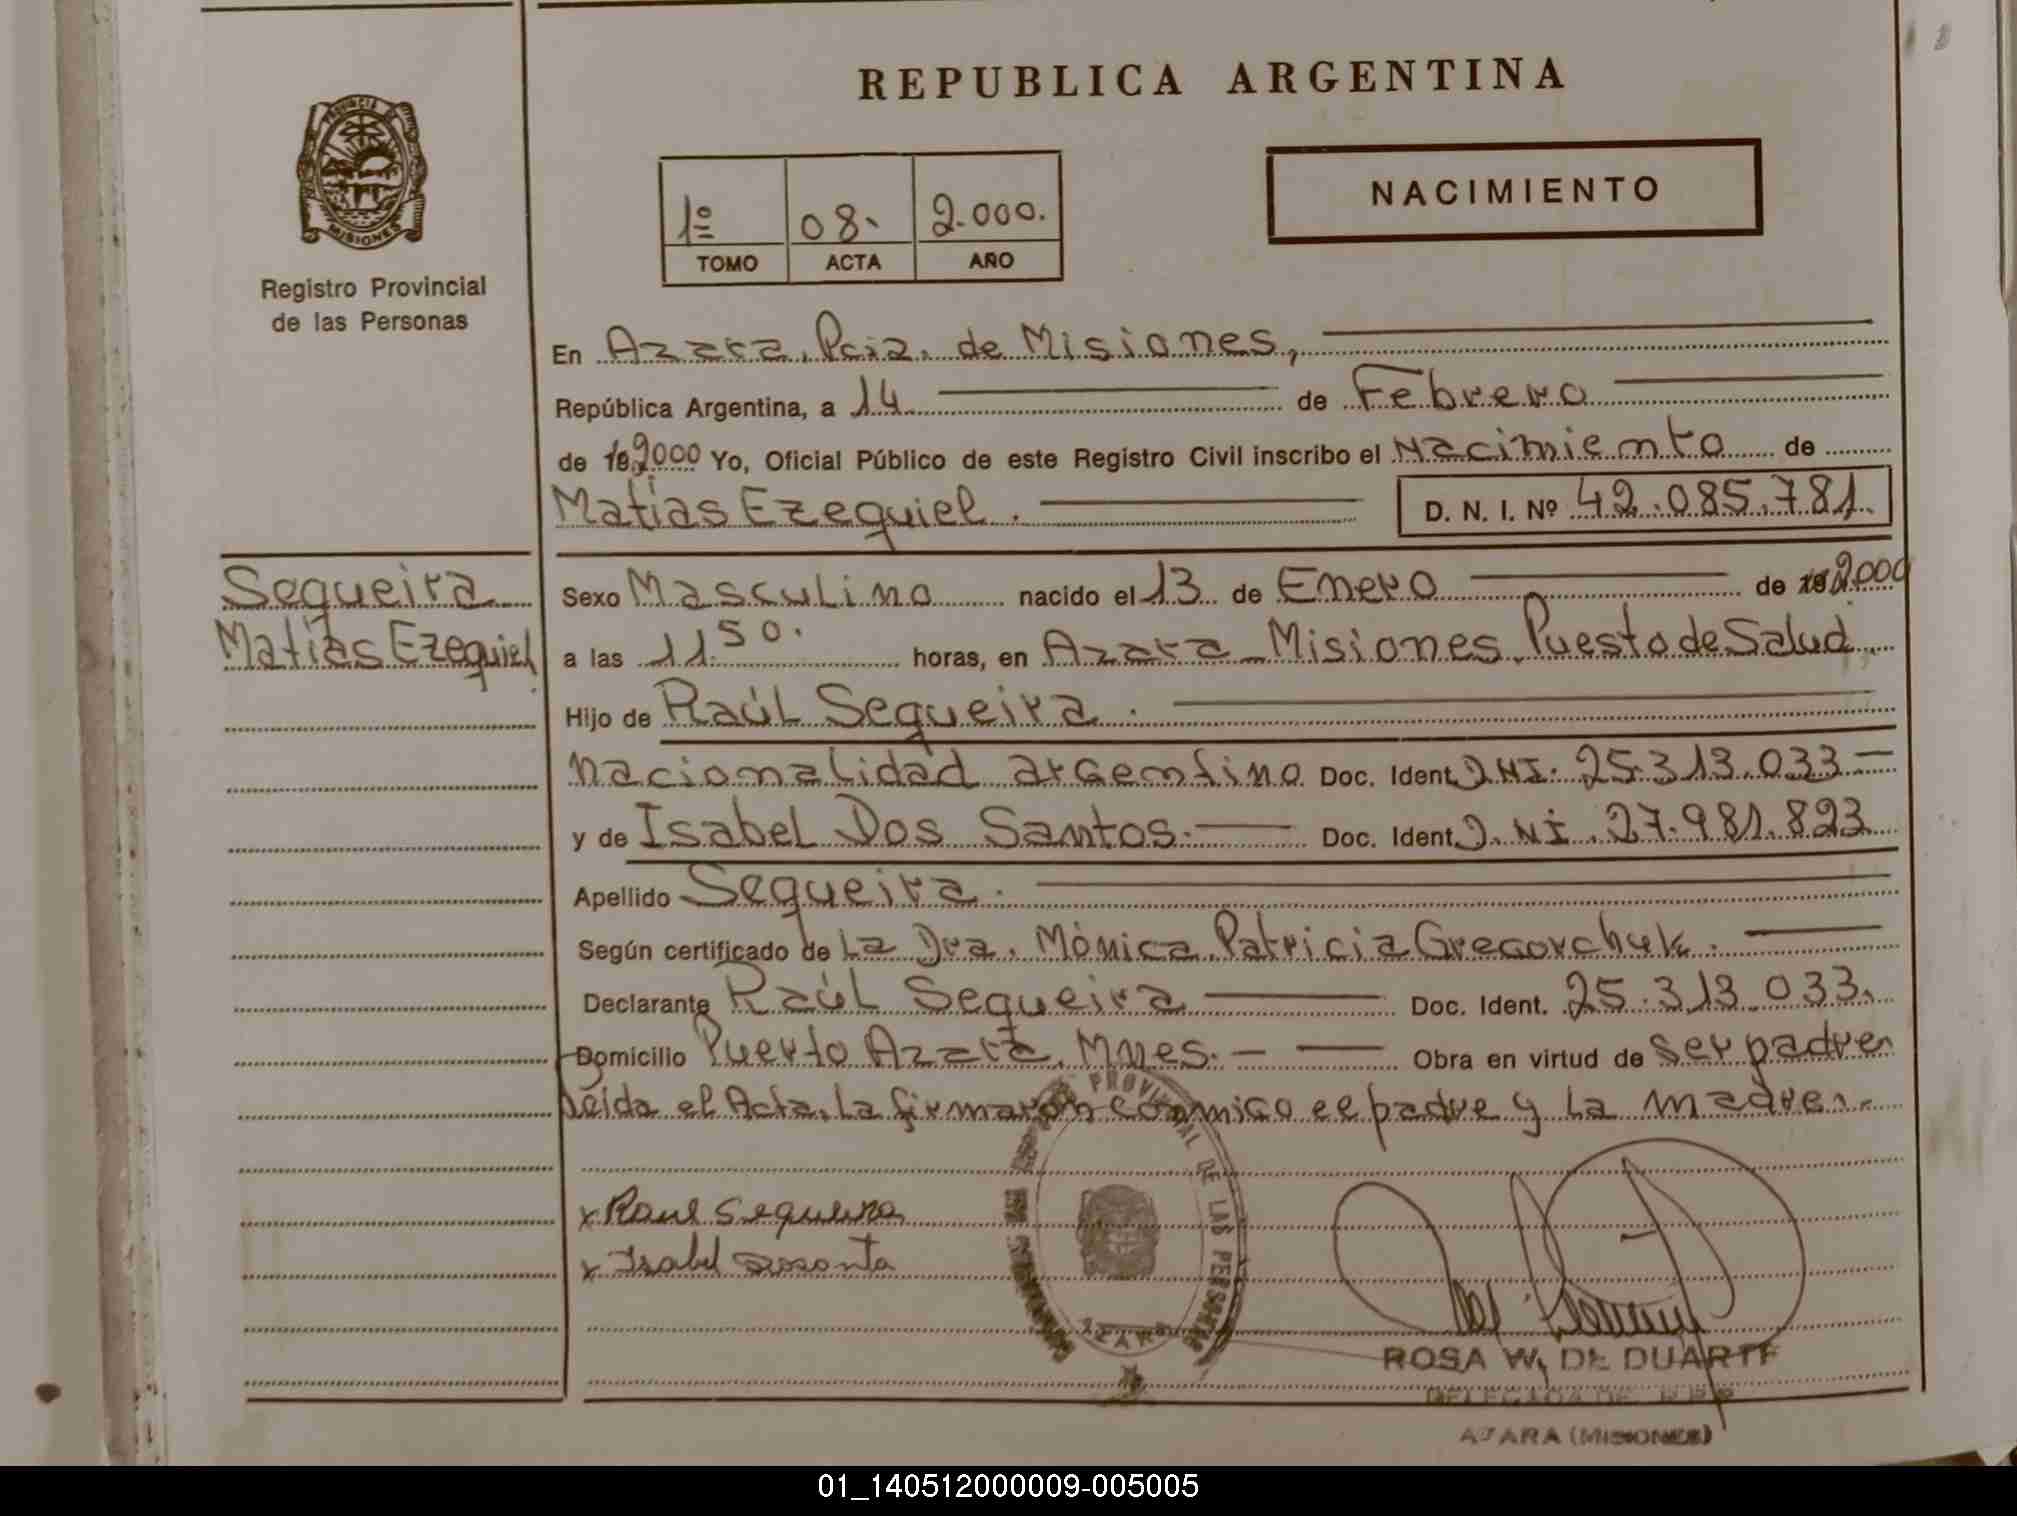 REPUBLICA ARGENTINA
PROVINCIA DE
MISIONES
Registro Provincial
de las Personas
1º 08. 2.000.
TOMO ACTA AÑO
NACIMIENTO
En Azara, Pcia. de Misiones,
República Argentina, a 14 de Febrero
de 2000 Yo, Oficial Público de este Registro Civil inscribo el Nacimiento de
Matías Ezequiel. D. N. I. Nº 42.085.781.
Sequeira
Matías Ezequiel
Sexo Masculino nacido el 13 de Enero de 2000
a las 11.50. horas, en Azara Misiones, Puesto de Salud,
Hijo de Raúl Sequeira.
nacionalidad argentino Doc. Ident. DNI. 25.313.033
y de Isabel Dos Santos. Doc. Ident. D.NI. 27.981.823
Apellido Sequeira.
Según certificado de La Dra. Mónica Patricia Gregorchuk.
Declarante Raúl Sequeira Doc. Ident. 25.313.033.
Domicilio Puerto Azara, Mnes. Obra en virtud de ser padre
Leída el Acta, la firmaron conmigo el padre y la madre.
x Raul Sequeira
x Isabel
PROVINCIAL DE LAS PERSONAS
AZARA
ROSA W. DE DUARTE
DELEGADA DE R.P.P.
AZARA (MISIONES)
01_140512000009-005005